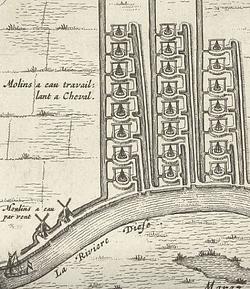 Molins a eau travail-
lant a Cheval.
Moulins a eau
par vent
La Riviere Diese